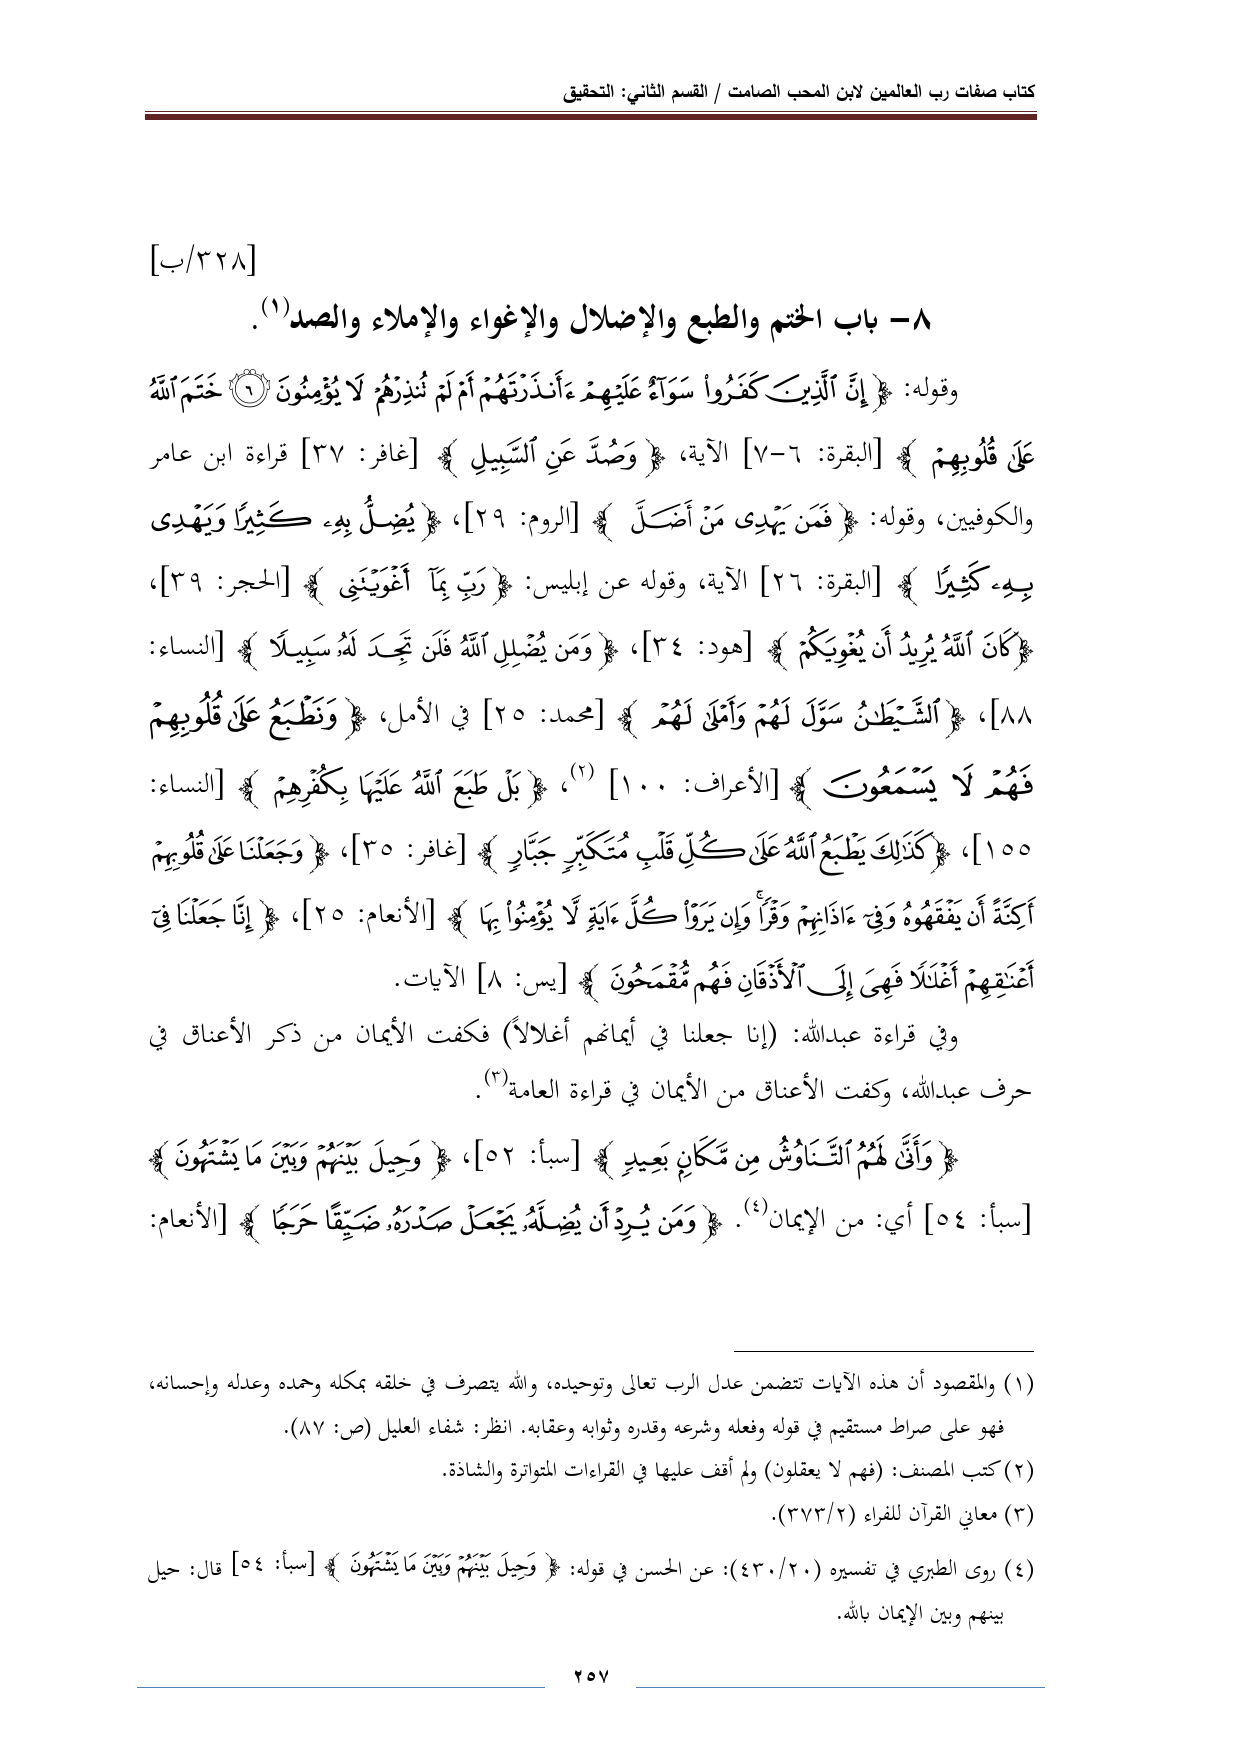 كتاب صفات رب العالمين لابن المحب الصامت / القسم الثاني: التحقيق
[٣٢٨/ب]
٨- باب الختم والطبع والإضلال والإغواء والإملاء والصد(١).
وقوله: ﴿ إِنَّ ٱلَّذِينَ كَفَرُوا۟ سَوَآءٌ عَلَيْهِمْ ءَأَنذَرْتَهُمْ أَمْ لَمْ تُنذِرْهُمْ لَا يُؤْمِنُونَ ٦ خَتَمَ ٱللَّهُ
عَلَىٰ قُلُوبِهِمْ ﴾ [البقرة: ٦-٧] الآية، ﴿ وَصُدَّ عَنِ ٱلسَّبِيلِ ﴾ [غافر: ٣٧] قراءة ابن عامر
والكوفيين، وقوله: ﴿ فَمَن يَهْدِى مَنْ أَضَلَّ ﴾ [الروم: ٢٩]، ﴿ يُضِلُّ بِهِۦ كَثِيرًا وَيَهْدِى
بِهِۦ كَثِيرًا ﴾ [البقرة: ٢٦] الآية، وقوله عن إبليس: ﴿ رَبِّ بِمَآ أَغْوَيْتَنِى ﴾ [الحجر: ٣٩]،
﴿كَانَ ٱللَّهُ يُرِيدُ أَن يُغْوِيَكُمْ ﴾ [هود: ٣٤]، ﴿ وَمَن يُضْلِلِ ٱللَّهُ فَلَن تَجِدَ لَهُۥ سَبِيلًا ﴾ [النساء:
٨٨]، ﴿ ٱلشَّيْطَٰنُ سَوَّلَ لَهُمْ وَأَمْلَىٰ لَهُمْ ﴾ [محمد: ٢٥] في الأمل، ﴿ وَنَطْبَعُ عَلَىٰ قُلُوبِهِمْ
فَهُمْ لَا يَسْمَعُونَ ﴾ [الأعراف: ١٠٠] (٢)، ﴿ بَلْ طَبَعَ ٱللَّهُ عَلَيْهَا بِكُفْرِهِمْ ﴾ [النساء:
١٥٥]، ﴿كَذَٰلِكَ يَطْبَعُ ٱللَّهُ عَلَىٰ كُلِّ قَلْبِ مُتَكَبِّرٍ جَبَّارٍ ﴾ [غافر: ٣٥]، ﴿ وَجَعَلْنَا عَلَىٰ قُلُوبِهِمْ
أَكِنَّةً أَن يَفْقَهُوهُ وَفِىٓ ءَاذَانِهِمْ وَقْرًا ۚ وَإِن يَرَوْا۟ كُلَّ ءَايَةٍ لَّا يُؤْمِنُوا۟ بِهَا ﴾ [الأنعام: ٢٥]، ﴿ إِنَّا جَعَلْنَا فِىٓ
أَعْنَٰقِهِمْ أَغْلَٰلًا فَهِىَ إِلَى ٱلْأَذْقَانِ فَهُم مُّقْمَحُونَ ﴾ [يس: ٨] الآيات.
وفي قراءة عبدالله: (إنا جعلنا في أيمانهم أغلالاً) فكفت الأيمان من ذكر الأعناق في
حرف عبدالله، وكفت الأعناق من الأيمان في قراءة العامة(٣).
﴿ وَأَنَّىٰ لَهُمُ ٱلتَّنَاوُشُ مِن مَّكَانٍ بَعِيدٍ ﴾ [سبأ: ٥٢]، ﴿ وَحِيلَ بَيْنَهُمْ وَبَيْنَ مَا يَشْتَهُونَ ﴾
[سبأ: ٥٤] أي: من الإيمان(٤). ﴿ وَمَن يُرِدْ أَن يُضِلَّهُۥ يَجْعَلْ صَدْرَهُۥ ضَيِّقًا حَرَجًا ﴾ [الأنعام:
(١) والمقصود أن هذه الآيات تتضمن عدل الرب تعالى وتوحيده، والله يتصرف في خلقه بمكله وحمده وعدله وإحسانه،
فهو على صراط مستقيم في قوله وفعله وشرعه وقدره وثوابه وعقابه. انظر: شفاء العليل (ص: ٨٧).
(٢) كتب المصنف: (فهم لا يعقلون) ولم أقف عليها في القراءات المتواترة والشاذة.
(٣) معاني القرآن للفراء (٣٧٣/٢).
(٤) روى الطبري في تفسيره (٤٣٠/٢٠): عن الحسن في قوله: ﴿ وَحِيلَ بَيْنَهُمْ وَبَيْنَ مَا يَشْتَهُونَ ﴾ [سبأ: ٥٤] قال: حيل
بينهم وبين الإيمان بالله.
٢٥٧